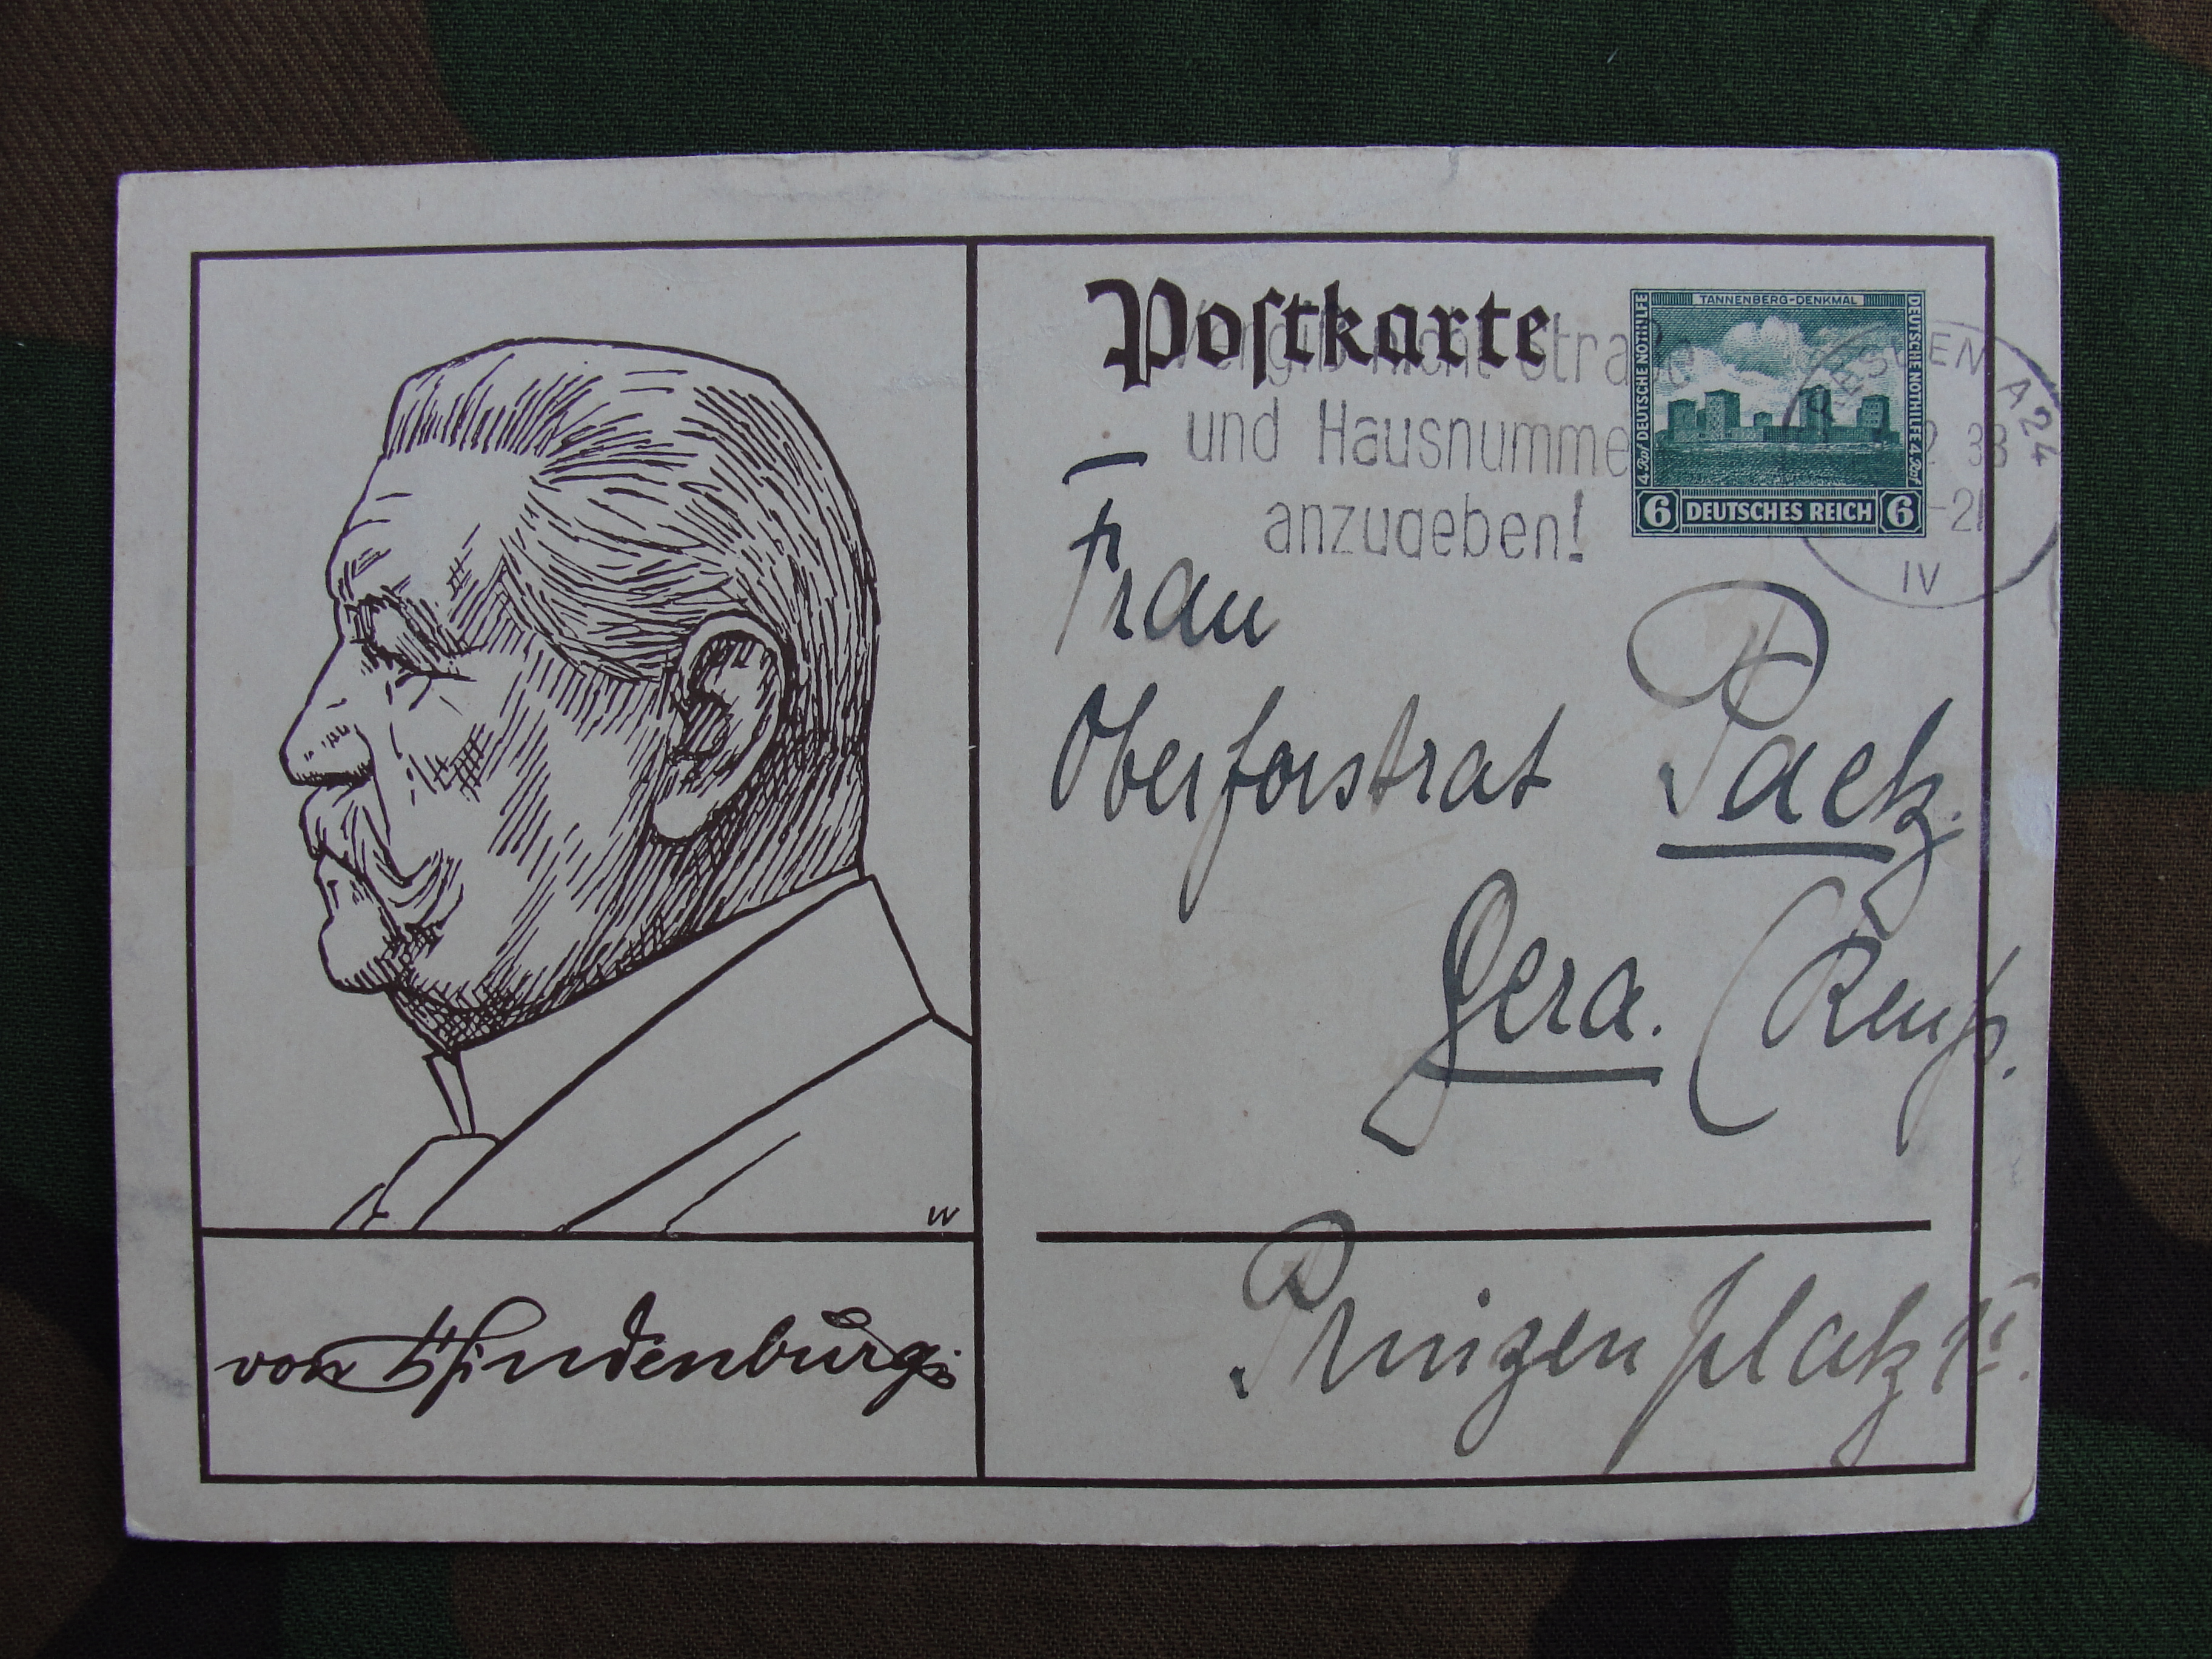 Postkarte
Vergiß nicht Straße
und Hausnummer
anzugeben!
TANNENBERG-DENKMAL
4 Rpf DEUTSCHE NOTHILFE
DEUTSCHE NOTHILFE 4 Rpf
6 DEUTSCHES REICH 6
DRESDEN A24
2 33
-21
IV
Frau
Oberforstrat Paetz.
Gera. (Reuß.
Prinzenplatz
W
von Hindenburg